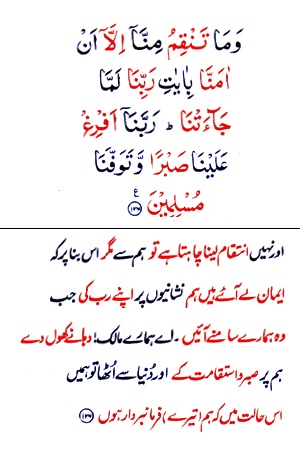 وَمَا تَنْقِمُ مِنَّآ اِلَّآ اَنْ
اٰمَنَّا بِاٰيٰتِ رَبِّنَا لَمَّا
جَآءَتْنَا ؕ رَبَّنَآ اَفْرِغْ
عَلَيْنَا صَبْرًا وَّتَوَفَّنَا
مُسْلِمِيْنَ ع ۝۱۲۶
اور نہیں انتقام لینا چاہتا ہے تو ہم سے مگر اس بنا پر کہ
ایمان لے آئے ہیں ہم نشانیوں پر اپنے رب کی جب
وہ ہمارے سامنے آئیں ۔ اے ہمارے مالک! دہانے کھول دے
ہم پر صبر و استقامت کے اور دُنیا سے اُٹھا تو ہمیں
اس حالت میں کہ ہم (تیرے) فرمانبردار ہوں ۝۱۲۶